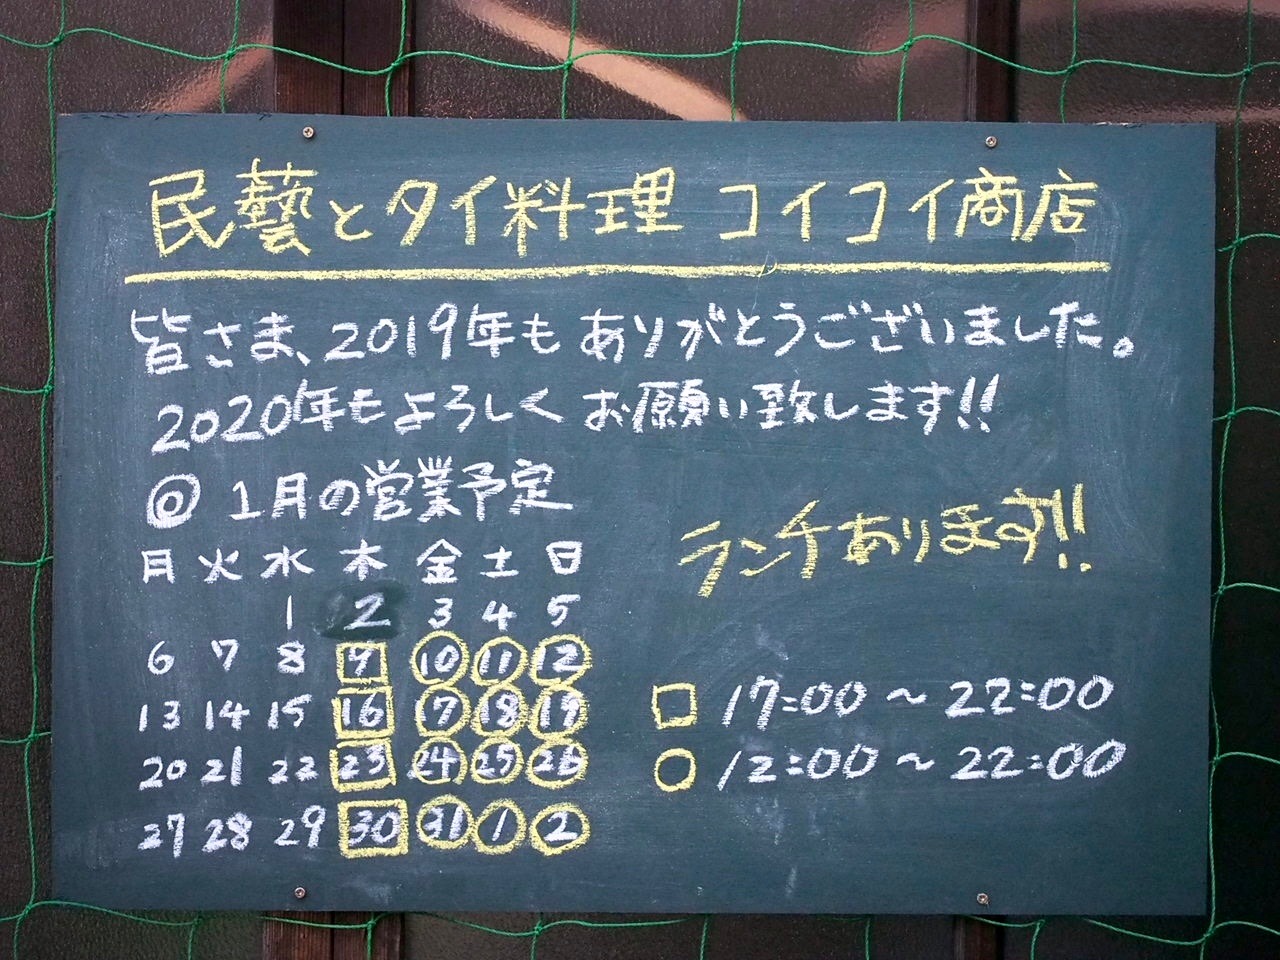 民藝とタイ料理 コイコイ商店
皆さま、2019年も ありがとうございました。
2020年もよろしく お願い致します!!
◎ 1月の営業予定
ランチあります!!
月 火 水 木 金 土 日
1 2 3 4 5
6 7 8 9 10 11 12
13 14 15 16 17 18 19
20 21 22 23 24 25 26
27 28 29 30 31 1 2
□ 17:00 〜 22:00
○ 12:00 〜 22:00